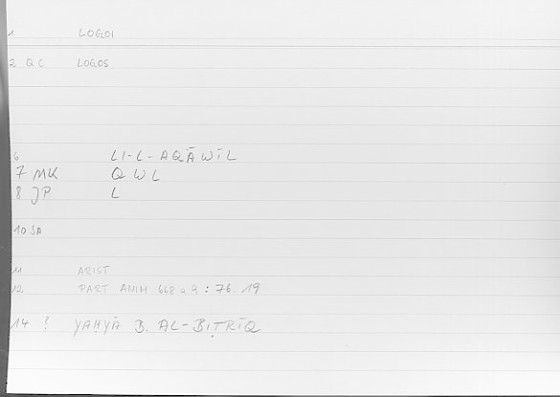 1 LOGOI
2 QC LOGOS
6 LI-L-AQĀWĪL
7 MK QWL
8 JP L
10 SA
11 ARIST
12 PART ANIM 668 a 9 : 76.19
14 ? YAḤYĀ B. AL-BIṬRĪQ